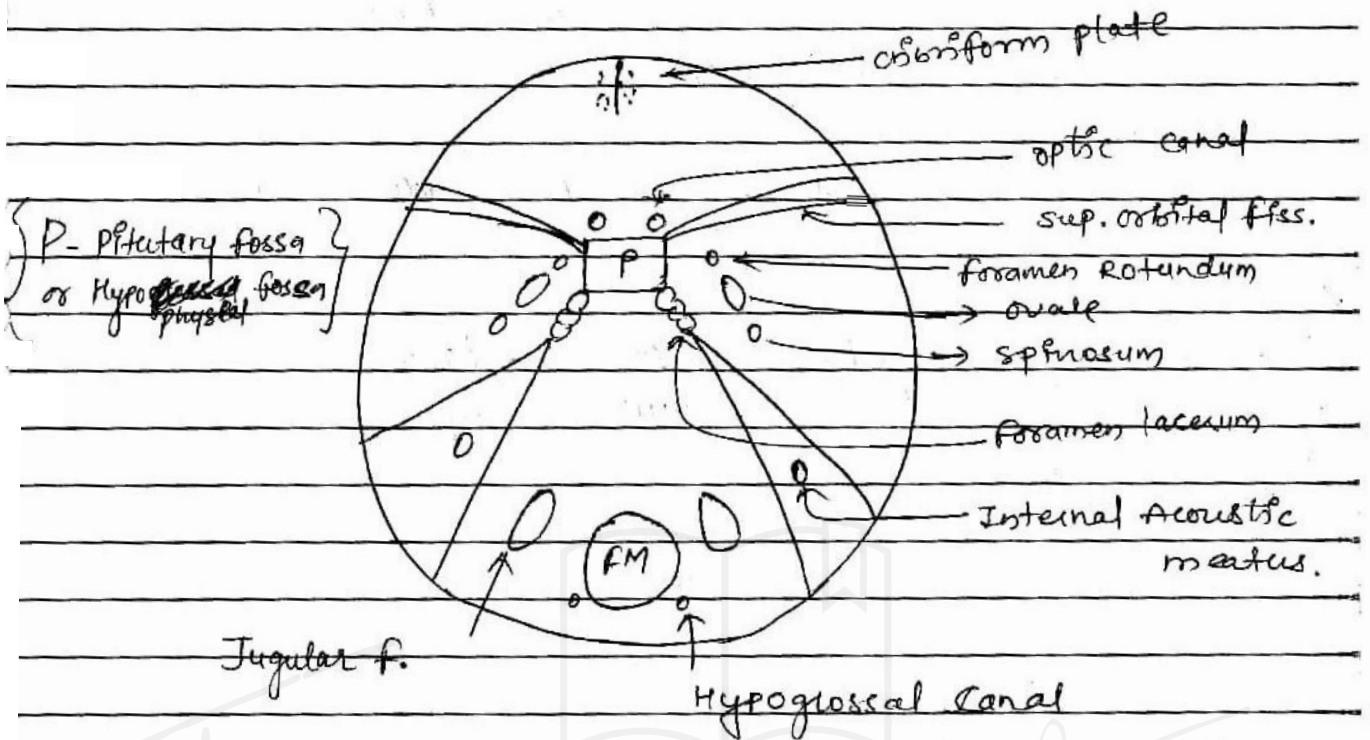 cribriform plate
optic canal
sup. orbital fiss.
P- Pitutary fossa
or Hypo physial fossa
P
foramen Rotundum
ovale
spinosum
foramen lacerum
Internal Acoustic
meatus.
FM
Jugular f.
Hypoglossal Canal